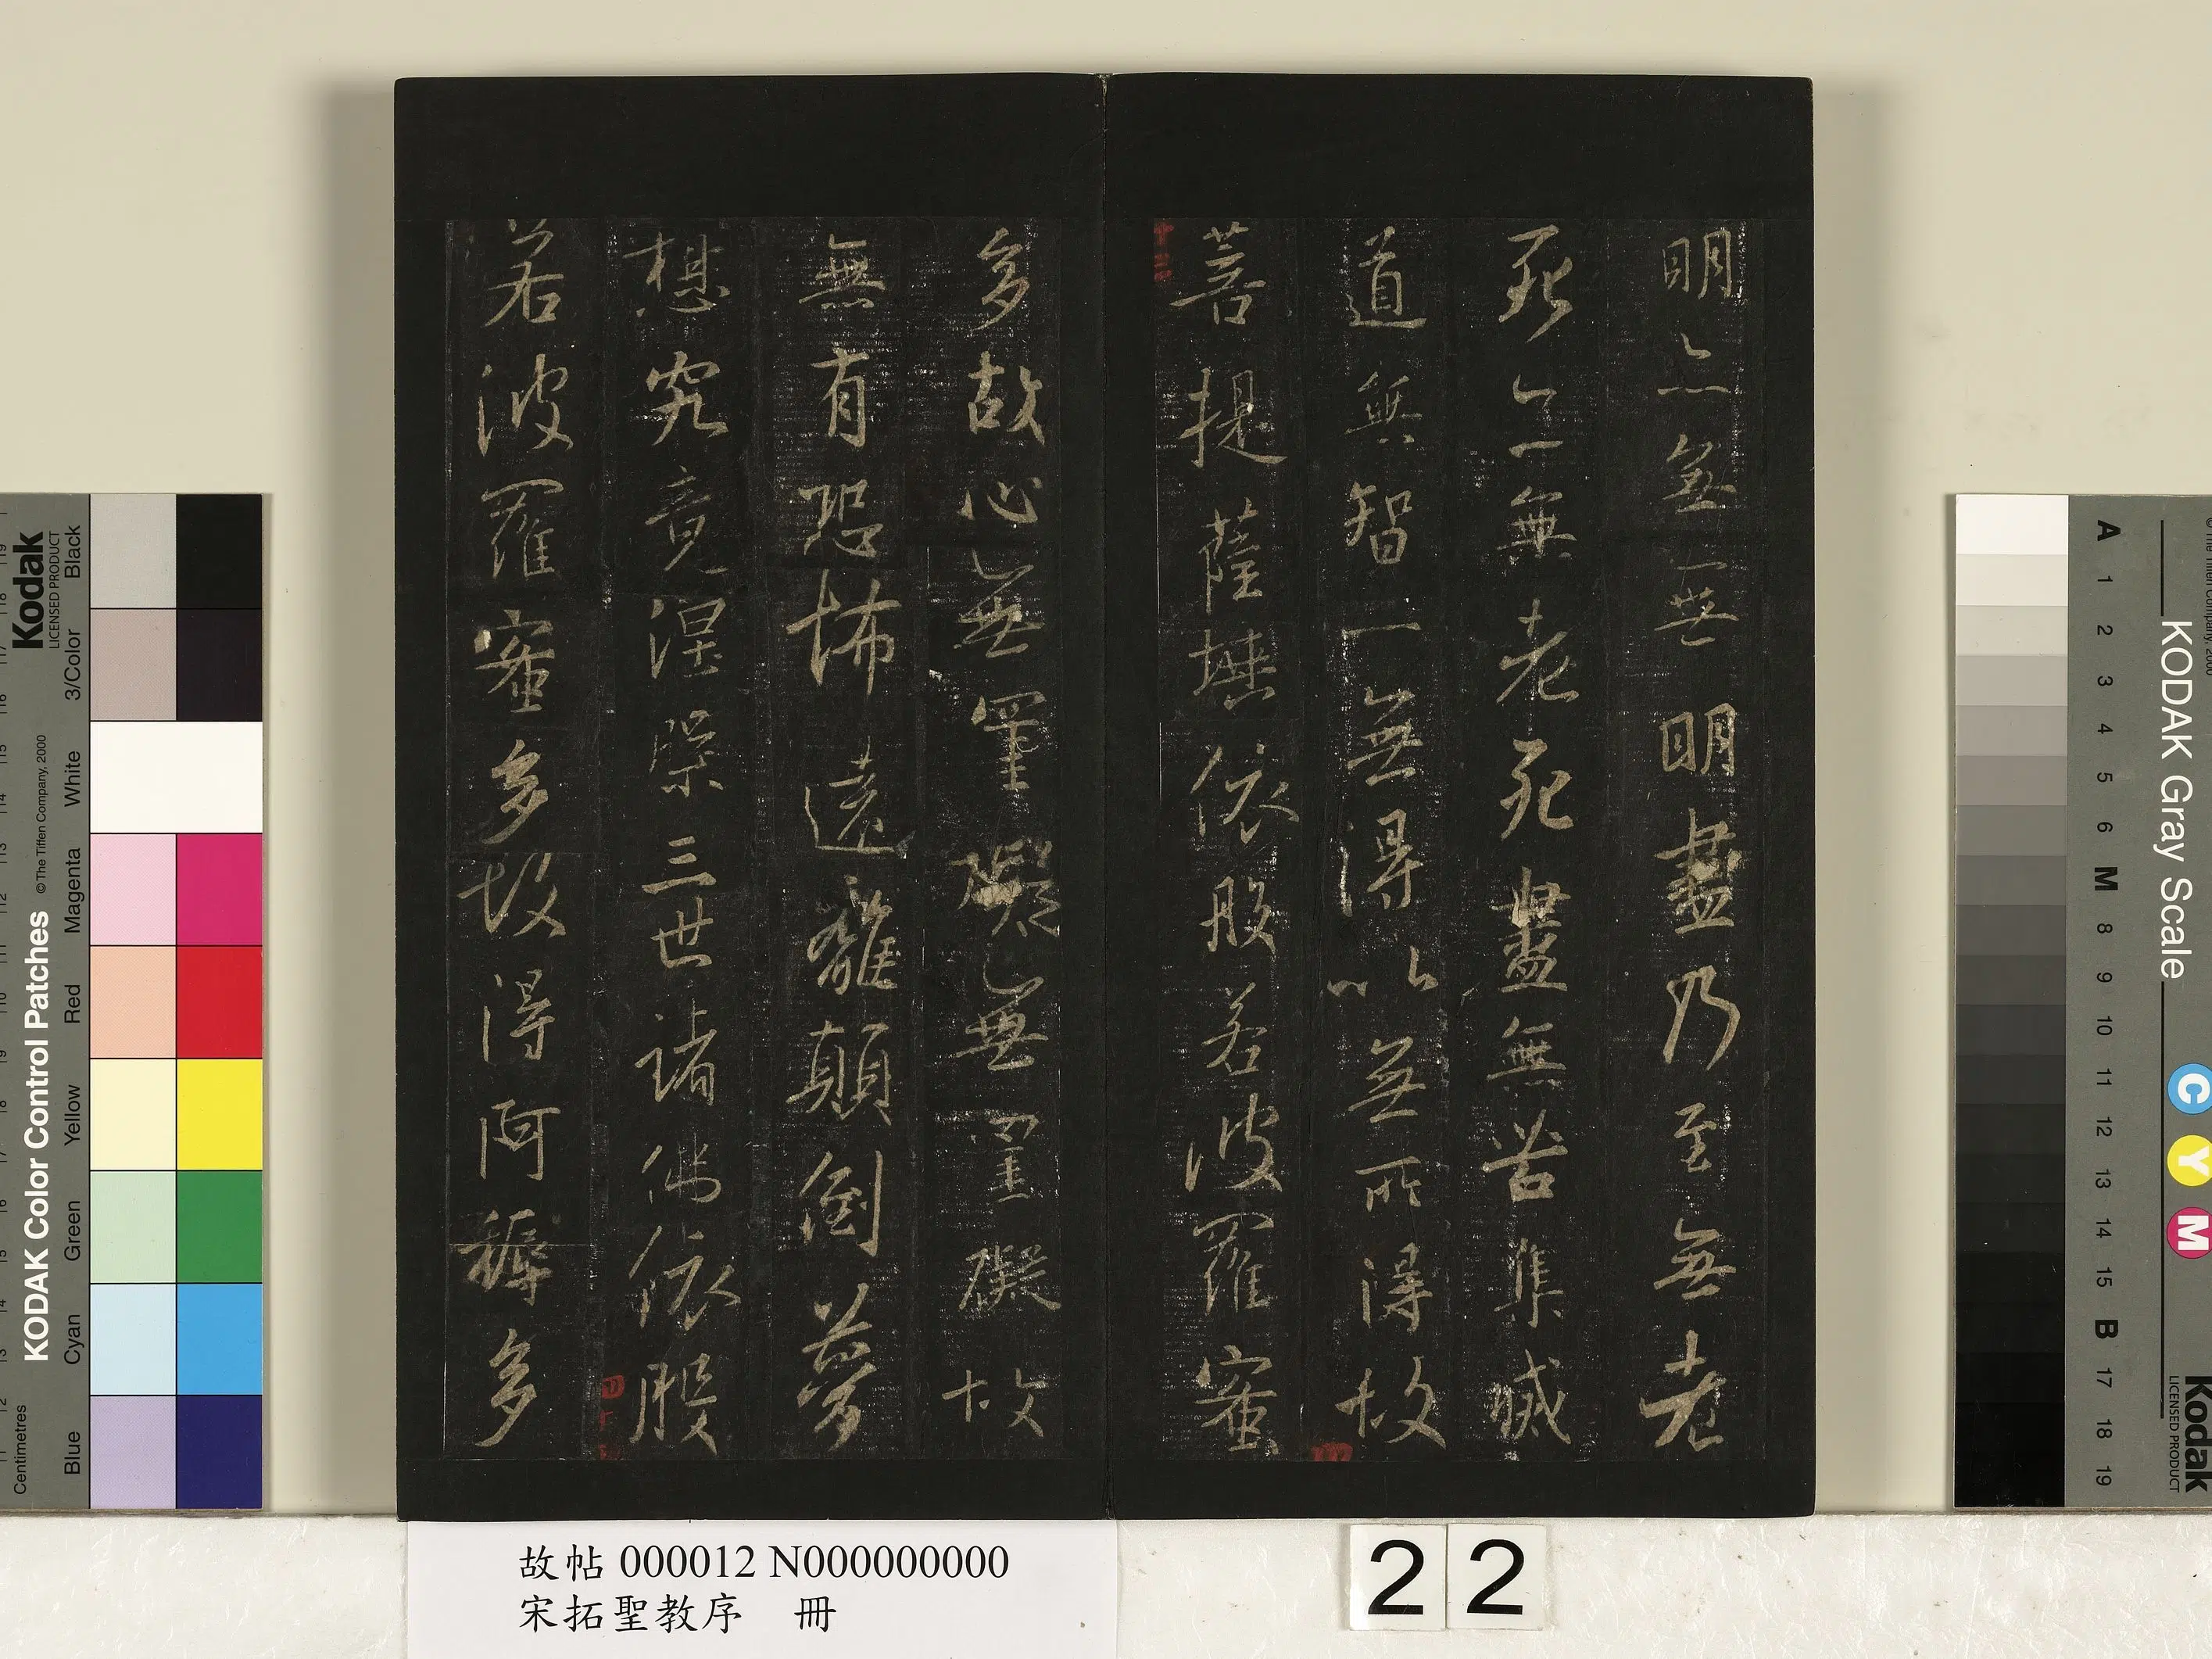 明亦無無明盡乃至無老
死亦無老死盡無苦集滅
道無智亦無得以無所得故
菩提薩埵依般若波羅蜜
多故心無罣礙無罣礙故
無有恐怖遠離顛倒夢
想究竟涅槃三世諸佛依般
若波羅蜜多故得阿耨多
故帖 000012 N000000000
宋拓聖教序 冊
22
KODAK Color Control Patches
©The Tiffen Company, 2000
Kodak
LICENSED PRODUCT
Centimetres
Blue Cyan Green Yellow Red Magenta White 3/Color Black
KODAK Gray Scale
C Y M
Kodak
LICENSED PRODUCT
A 1 2 3 4 5 6 M 8 9 10 11 12 13 14 15 B 17 18 19